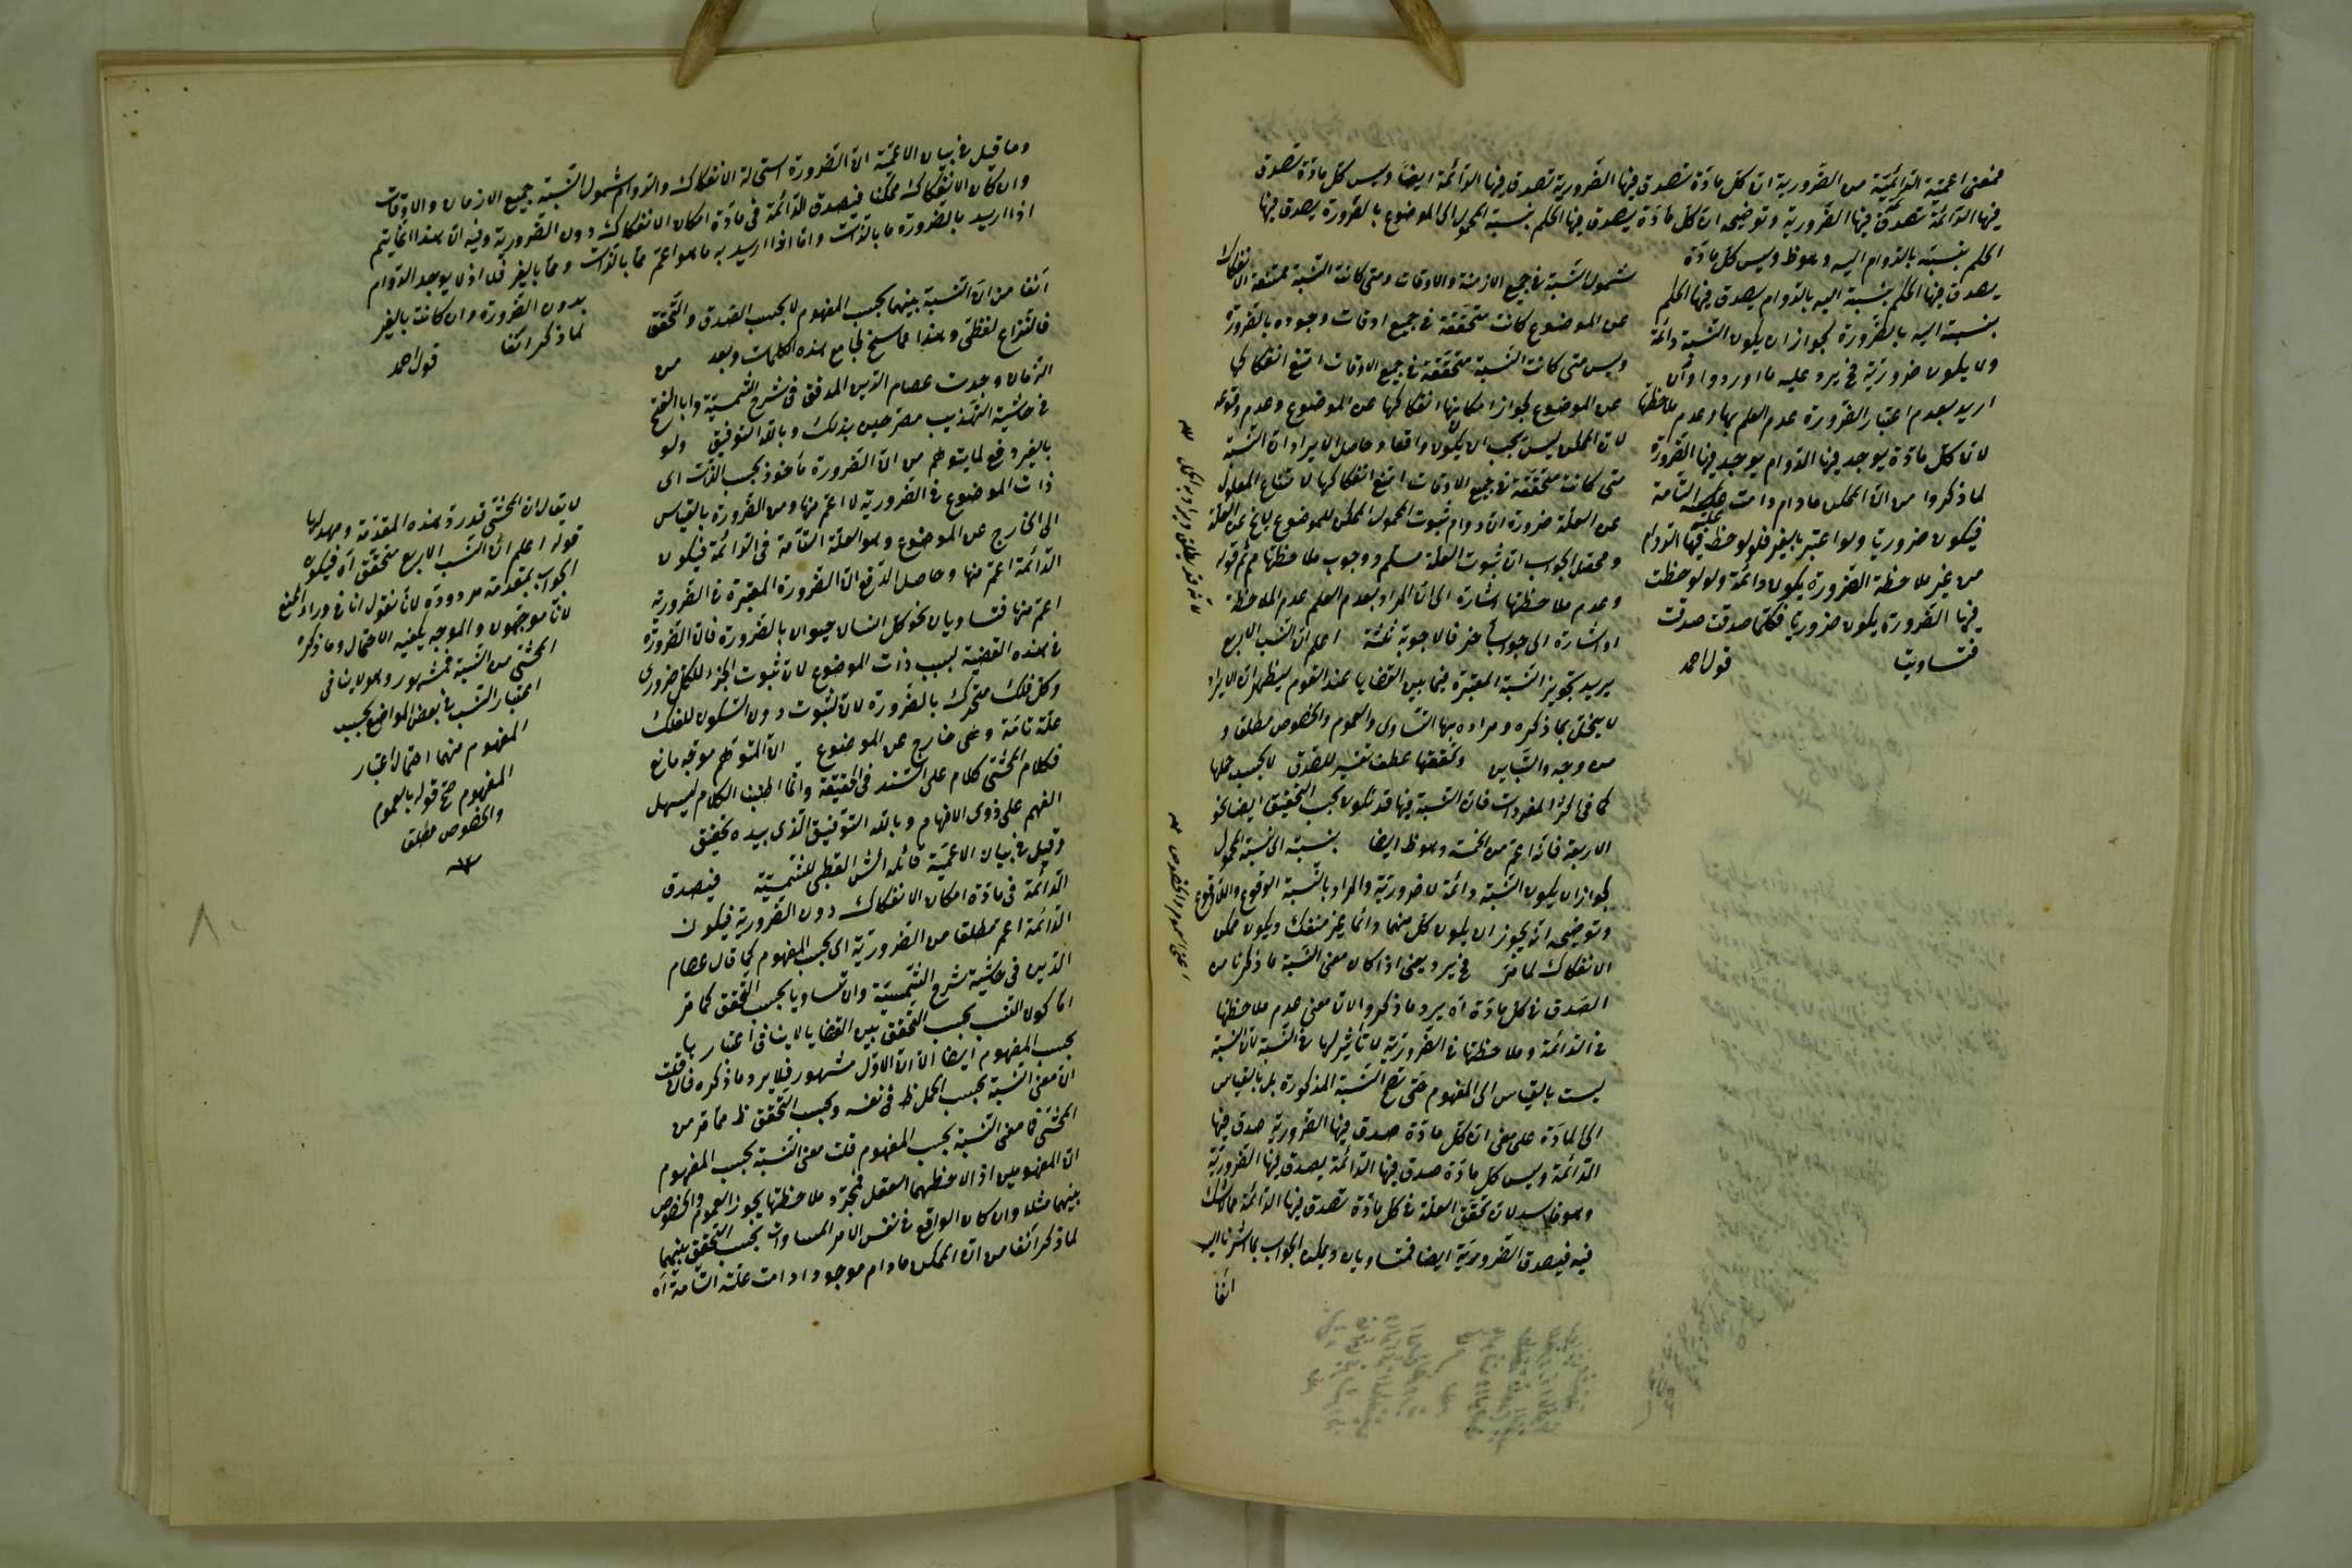 فمعنى اعمية الدائمية من الضرورية ان كل مادة تصدق فيها الضرورية تصدق فيها الدائمة ايضا وليس كل مادة تصدق
فيها الدائمة تصدق فيها الضرورية وتوضيحه ان كل مادة يصدق فيها الحكم بنسبة المحمول الى الموضوع بالضرورة يصدق فيها
الحكم بنسبته بالدوام اليه وهو ظ وليس كل مادة
يصدق فيها الحكم بنسبته اليه بالدوام يصدق فيها الحكم
بنسبته اليه بالضرورة لجواز ان يكون النسبة دائمة
ولا يكون ضرورية فح يرد عليه ما اوردوا وان
اريد بعدم اعتبار الضرورة عدم العلم بها وعدم ملاحظتها
لان كل مادة يوجد فيها الدوام يوجد فيها الضرورة
لما ذكروا من ان الممكن مادام دامت علته التامة
فيكون ضروريا ولو اعتبر بالغير فلو لوحظ فيها الدوام
من غير ملاحظة الضرورة يكون دائمة ولو لوحظت
فيها الضرورة يكون ضروريا فكلما صدقت صدقت
فتساويتا قول احمد
شمول النسبة في جميع الازمنة والاوقات ومتى كانت النسبة ممتنعة الانفكاك
عن الموضوع كانت متحققة في جميع اوقات وجوده بالضرورة
وليس متى كانت النسبة متحققة في جميع الاوقات امتنع انفكاكها
عن الموضوع لجواز امكانها انفكاكها عن الموضوع وعدم وقوعه
لان الممكن ليس يجب ان يكون واقعا وحاصل الايراد ان النسبة
متى كانت متحققة في جميع الاوقات امتنع انفكاكها لامتناع المعلول
عن العلة ضرورة ان دوام ثبوت المحمول الممكن للموضوع تابع عن العلة
ومحصل الجواب ان ثبوت العلة مسلم ووجوب ملاحظتها مم ثم قوله
وعدم ملاحظتها اشارة الى ان المراد بعدم العلم عدم الملاحظة
او اشارة الى جواب آخر فالاجوبة ثلثة اعلم ان النسب الاربع
يريد تجويز النسبة المعتبرة فيما بين القضايا عند القوم ليظهر ان الايراد
لا يختل بما ذكره ومراده بها التساوى والعموم والخصوص مطلقا و
من وجه والتباين وتحققها عطف تفسير للصدق لا بحسب حملها
كما في اكثر المفردات فان النسبة فيها قد تكون بحسب التحقيق ايضا نحو
الاربعة فانه اعم من الخمسة وهو ظ ايضا بنسبته الى نسبة المحمول
لجواز ان يكون النسبة دائمة لا ضرورية والمراد بالنسبة الوقوع واللاوقوع
وتوضيحه انه يجوز ان يكون كل منهما دائما غير منفك ويكون ممكن
الانفكاك لما مر فح يرد يعنى اذا كان معنى النسبة ما ذكرنا من
الصدق في كل مادة آه يرد ما ذكروا لان معنى عدم ملاحظتها
في الدائمة وملاحظتها في الضرورية لا تأثير لها في النسبة لان النسبة
ليست بالقياس الى المفهوم حتى تصح النسبة المذكورة بل بالقياس
الى المادة على معنى ان كل مادة صدق فيها الضرورية صدق فيها
الدائمة وليس كل مادة صدق فيها الدائمة يصدق فيها الضرورية
وهو فاسد لان تحقق العلة في كل مادة تصدق فيها الدائمة مما لا شك
فيه فيصدق الضرورية ايضا فتساويان ويمكن الجواب بما اشرنا اليه
آنفا
وما قيل في بيان الاعمية ان الضرورة استحالة الانفكاك والدوام شمول النسبة جميع الازمان والاوقات
وان كان الانفكاك ممكنا فتصدق الدائمة في مادة امكان الانفكاك دون الضرورية وفيه ان هذا انما يتم
اذا اريد بالضرورة ما بالذات واما اذا اريد به ما هو اعم مما بالذات ومما بالغير فلا اذ لا يوجد الدوام
بدون الضرورة وان كانت بالغير
لما ذكر آنفا قول احمد
آنفا من ان النسبة بينهما بحسب المفهوم لا بحسب الصدق والتحقق
فالنزاع لفظى وهذا مما سنح لجامع هذه الكلمات وبعد من
الزمان وجدت عصام الدين المدقق في شرح الشمسية وابا الفتح
في حاشية التهذيب مصرحين بذلك وبالله التوفيق ولو
بالغير دفع لما يتوهم من ان الضرورة مأخوذ بحسب الذات اى
ذات الموضوع في الضرورية لا اعم منها ومن الضرورة بالقياس
الى الخارج عن الموضوع وهو العلة التامة في الدائمة فيكون
الدائمة اعم منها وحاصل الدفع ان الضرورة المعتبرة في الضرورية
اعم منها فتساويان نحو كل انسان حيوان بالضرورة فان الضرورة
في هذه القضية بسبب ذات الموضوع لان ثبوت الجزء للكل ضرورى
وكل فلك متحرك بالضرورة لان لثبوت دون السكون للفلك
علة تامة وهى خارج عن الموضوع ان المتوهم موجه مانع
فكلام المحشى كلام على السند في الحقيقة وانما اطنب الكلام ليسهل
الفهم على ذوى الافهام وبالله التوفيق الذى بيده تحقيق
وقيل في بيان الاعمية قائله الش القطبى للشمسية فيصدق
الدائمة في مادة امكان الانفكاك دون الضرورية فيكون
الدائمة اعم مطلقا من الضرورية اى بحسب المفهوم كما قال عصام
الدين في حاشية شرح الشمسية والا تساويا بحسب التحقق كما مر
اما كون النسب بحسب التحقق بين القضايا لا ينافى اعتبارها
بحسب المفهوم ايضا الا ان الاول مشهور فلا يرد ما ذكره فان قلت
ان معنى النسبة بحسب الحمل ظ في نفسه وبحسب التحقق ظ مما مر من
المحشى فما معنى النسبة بحسب المفهوم قلت معنى النسبة بحسب المفهوم
ان المفهومين اذا لاحظهما العقل فمجرد ملاحظتها يجوز العموم والخصوص
بينهما مثلا وان كان الواقع في نفس الامر المساواة بحسب التحقق بينهما
لما ذكر آنفا من ان الممكن مادام موجودا دامت علته التامة آه
لا يقال ان المحشى قد رد هذه المقدمة ومهد لها
قوله اعلم ان النسب الاربع متحقق آه فيكون
الجواب بمقدمة مردودة لانا نقول انا في وراء المنع
لانا موجهون والموجه يكفيه الاحتمال وما ذكره
المحشى من النسبة فمشهور وهو لا ينافى
اعتبار النسب في بعض المواضع بحسب
المفهوم منهما احتمال اعتبار
المفهوم صح قوله بالعموم
والخصوص مطلقا